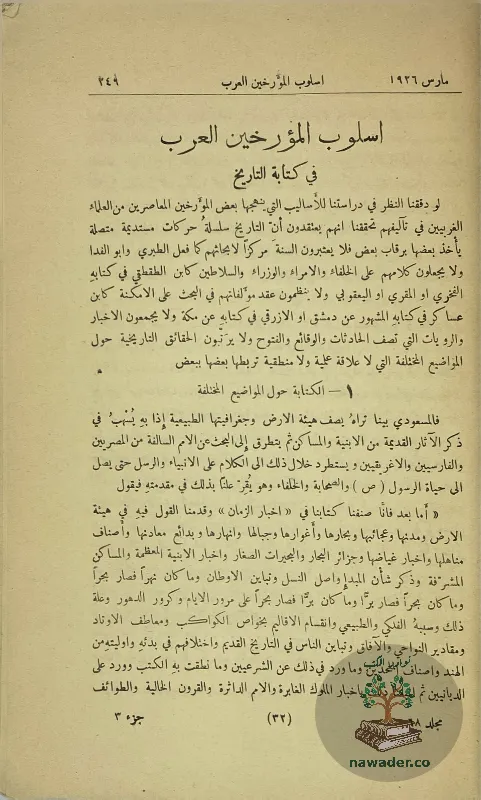 مارس ١٩٢٦ اسلوب المؤرخين العرب ٢٤٩
اسلوب المؤرخين العرب
في كتابة التاريخ
لو دققنا النظر في دراستنا للأساليب التي ينهجها بعض المؤرخين المعاصرين من العلماء
الغربيين في تآليفهم تحققنا انهم يعتقدون أنّ التاريخ سلسلةُ حركات مستديمة متصلة
يأخذ بعضها برقاب بعض فلا يعتبرون السنة مركزاً لابحاثهم كما فعل الطبري وابو الفدا
ولا يجعلون كلامهم على الخلفاء والامراء والوزراء والسلاطين كابن الطقطقي في كتابه
الفخري او المقري او اليعقوبي ولا ينظمون عقد مؤلفاتهم في البحث على الامكنة كابن
عساكر في كتابه المشهور عن دمشق او الازرقي في كتابه عن مكة ولا يجمعون الاخبار
والرويات التي تصف الحادثات والوقائع والفتوح ولا يرتبون الحقائق التاريخية حول
المواضيع المختلفة التي لا علاقة علمية ولا منطقية تربطها بعضها ببعض
١ – الكتابة حول المواضيع المختلفة
فالمسعودي بينا تراهُ يصف هيئة الارض وجغرافيتها الطبيعية إذا به يُسْهبُ في
ذكر الآثار القديمة من الابنية والمساكن ثم يتطرق إلى البحث عن الامم السالفة من المصريين
والفارسيين والاغريقيين ويستطرد خلال ذلك الى الكلام على الانبياء والرسل حتى يصل
الى حياة الرسول ( ص ) والصحابة والخلفاء وهو يُقِرّ علناً بذلك في مقدمته فيقول
« أما بعد فانَّا صنفنا كتابنا في « اخبار الزمان » وقدمنا القول فيه في هيئة
الارض ومدنها وعجائبها وبحارها وأغوارها وجبالها وانهارها و بدائع معادنها وأصناف
مناهلها واخبار غياضها وجزائر البحار والبحيرات الصغار واخبار الابنية المعظمة والمساكن
المشرّفة وذكر شأن المبدإ واصل النسل وتباين الاوطان وما كان نهراً فصار بحراً
وما كان بحراً فصار برًّا وما كان برًّا فصار بحراً على مرور الايام وكرور الدهور وعلة
ذلك وسببهُ الفلكي والطبيعي وانقسام الاقاليم بخواص الكواكب ومعاطف الاوتاد
ومقادير النواحي والآفاق وتباين الناس في التاريخ القديم واختلافهم في بدئه واوليته من
الهند واصناف الملحدين وما ورد في ذلك عن الشرعيين وما نطقت به الكتب وورد على
الديانيين ثم باخبار الملوك الغابرة والامم الداثرة والقرون الخالية والطوائف
جزء ٣ (٣٢) مجلد ٦٨
نوادر الكتب
nawader.co